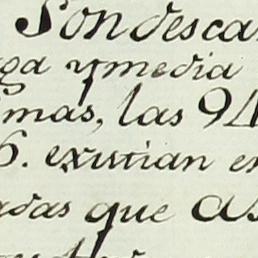 Son desca
ga y media
mas, las 94
6. existian e
adas que as